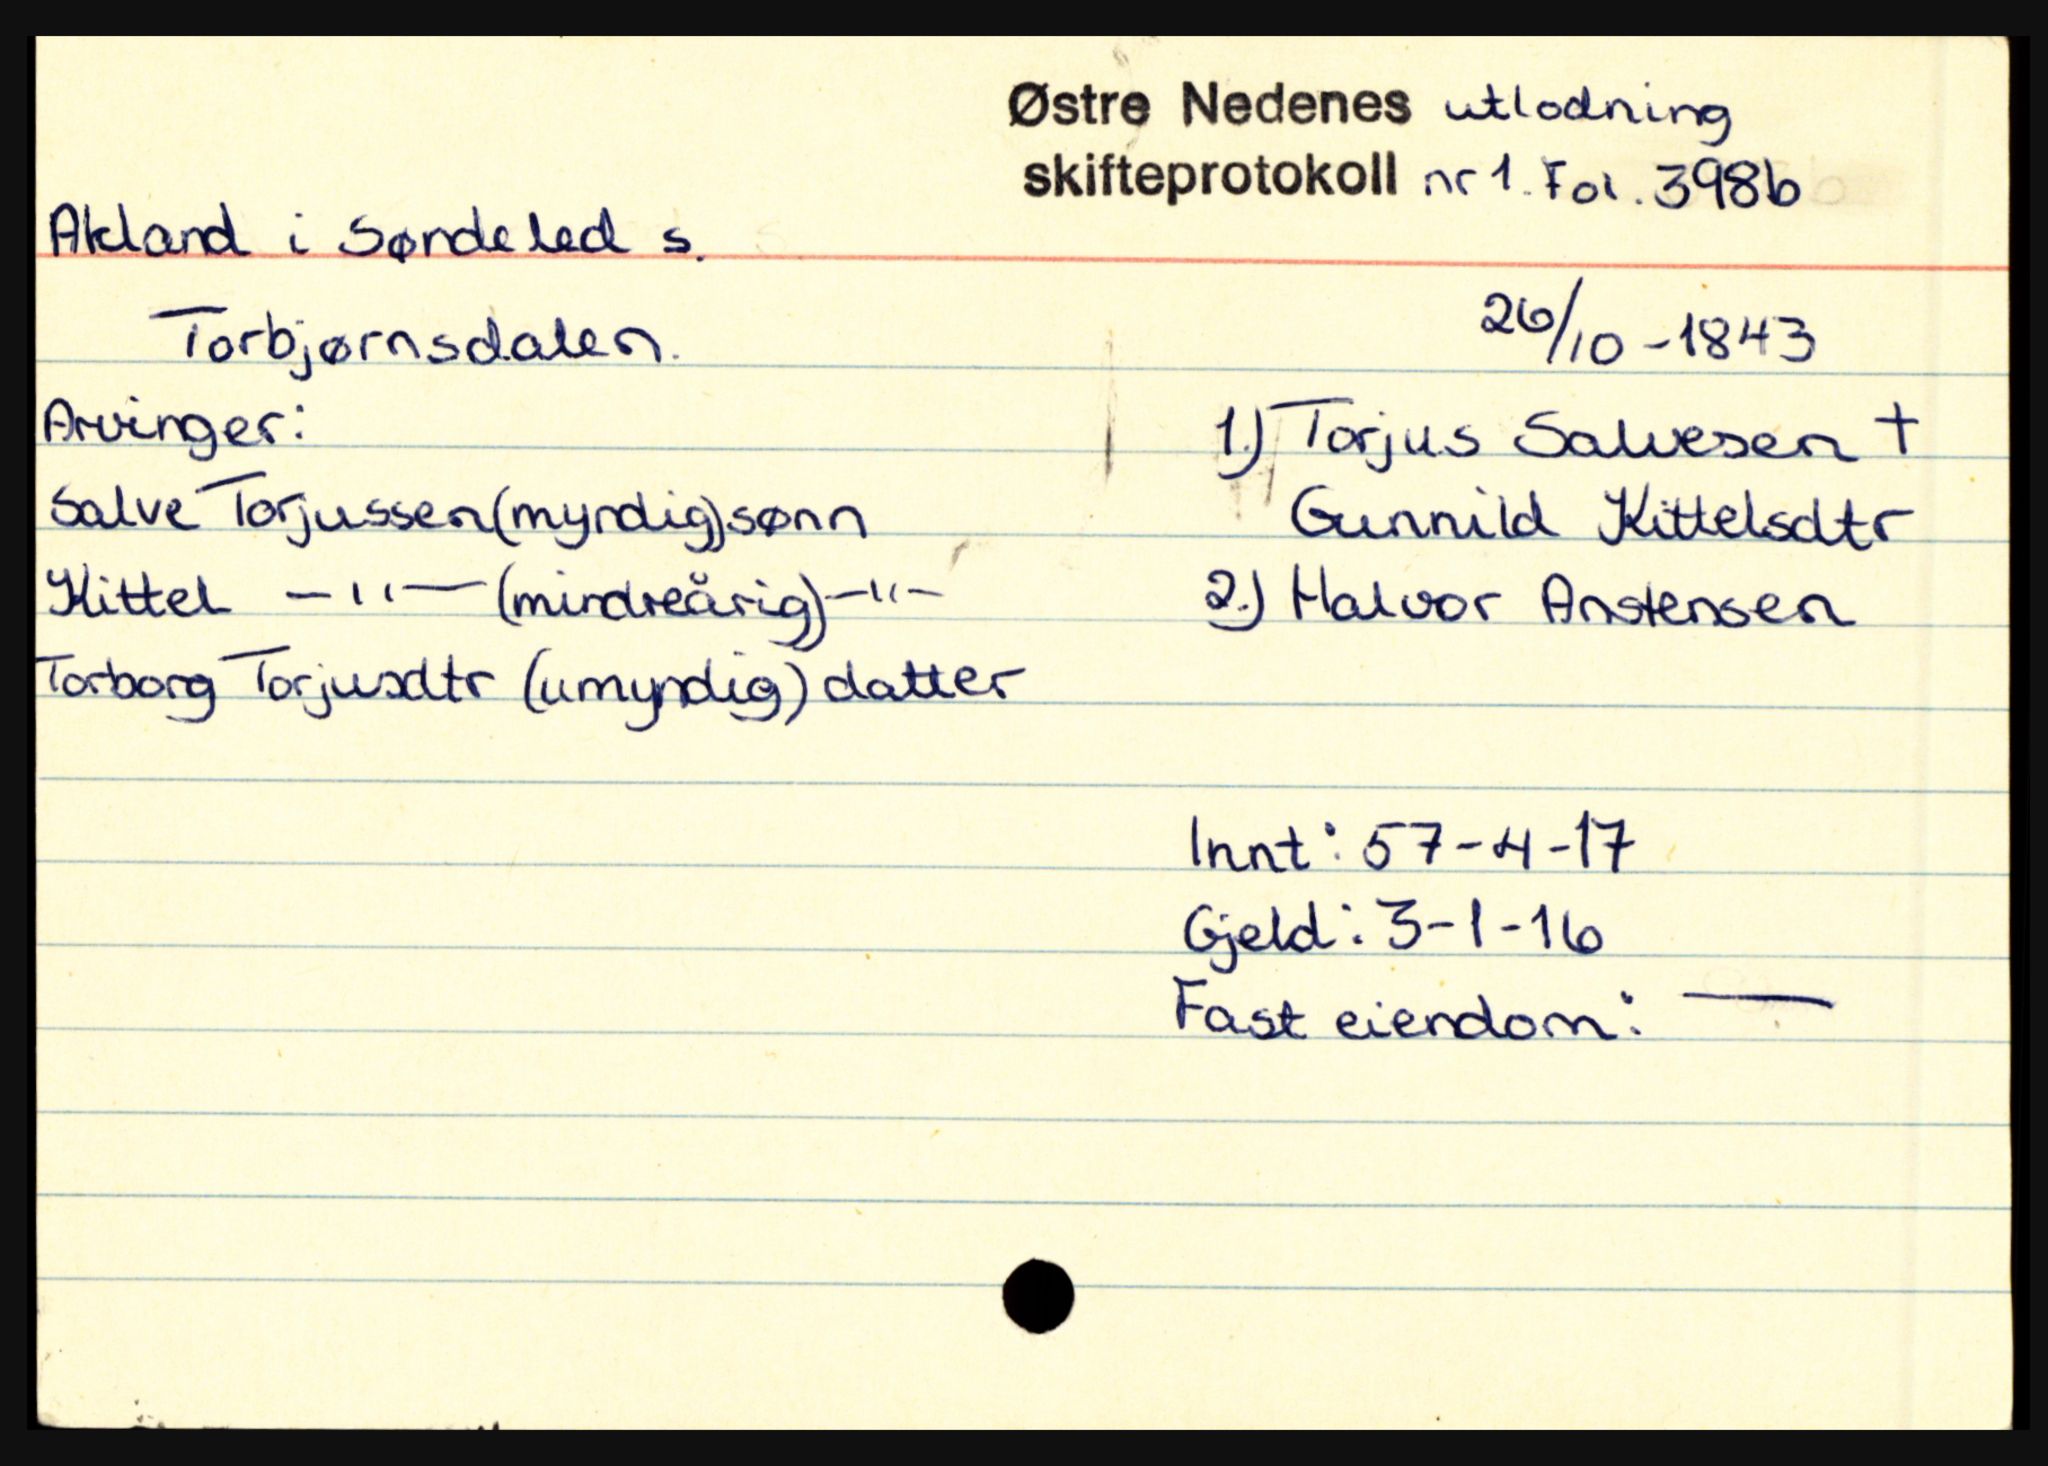 Østre Nedenes utlodning
skifteprotokoll nr 1. Fol. 398b
Akland i Søndeled s.
Torbjørnsdalen.
26/10 - 1843
Arvinger:
1.) Torjus Salvesen +
Salve Torjussen (myndig) sønn
Gunnild Kittelsdtr
Kittel —"— (mindreårig) —"—
2.) Halvor Anstensen
Torborg Torjusdtr (umyndig) datter
Innt: 57-4-17
Gjeld: 3-1-16
Fast eiendom: —